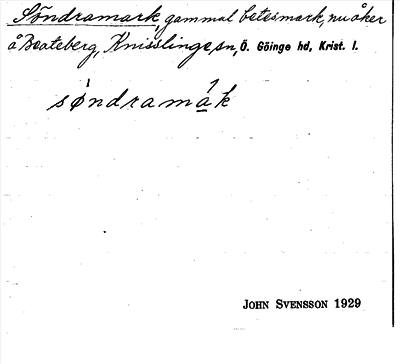 Söndramark, gammal betesmark, nu åker
å Beateberg, Knisslinge sn, Ö. Göinge hd, Krist. l.
søndramak
JOHN SVENSSON 1929